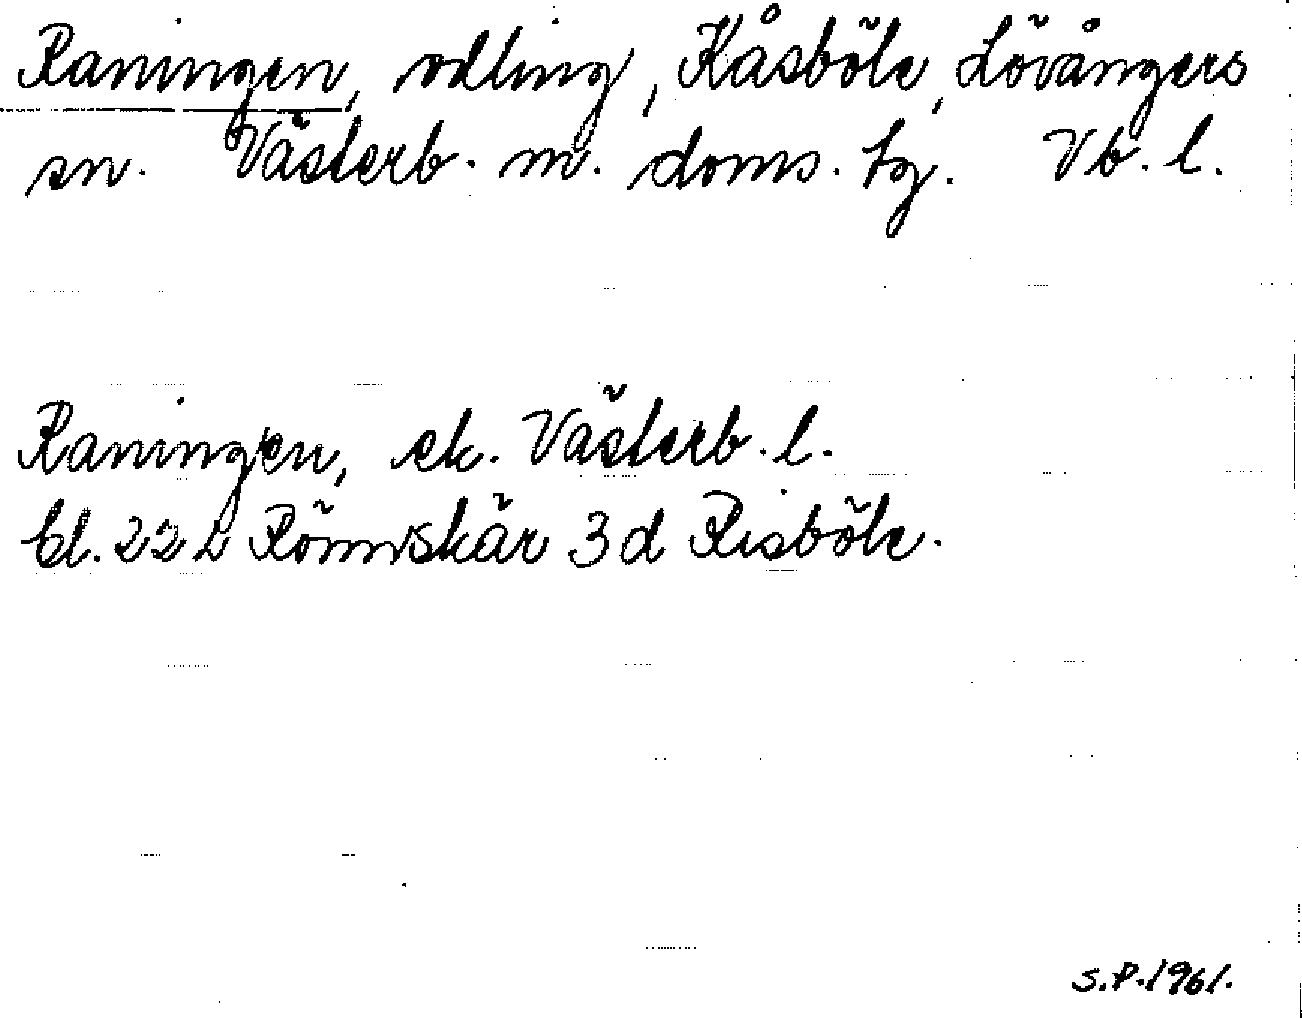 Raningen, odling, Kåsböle, Lövångers
sn. Västerb. m. doms. tg. Vb. l.
Raningen, ek. Västerb. l.
bl. 22 L Rönnskär 3 d Risböle.
S.P. 1961.